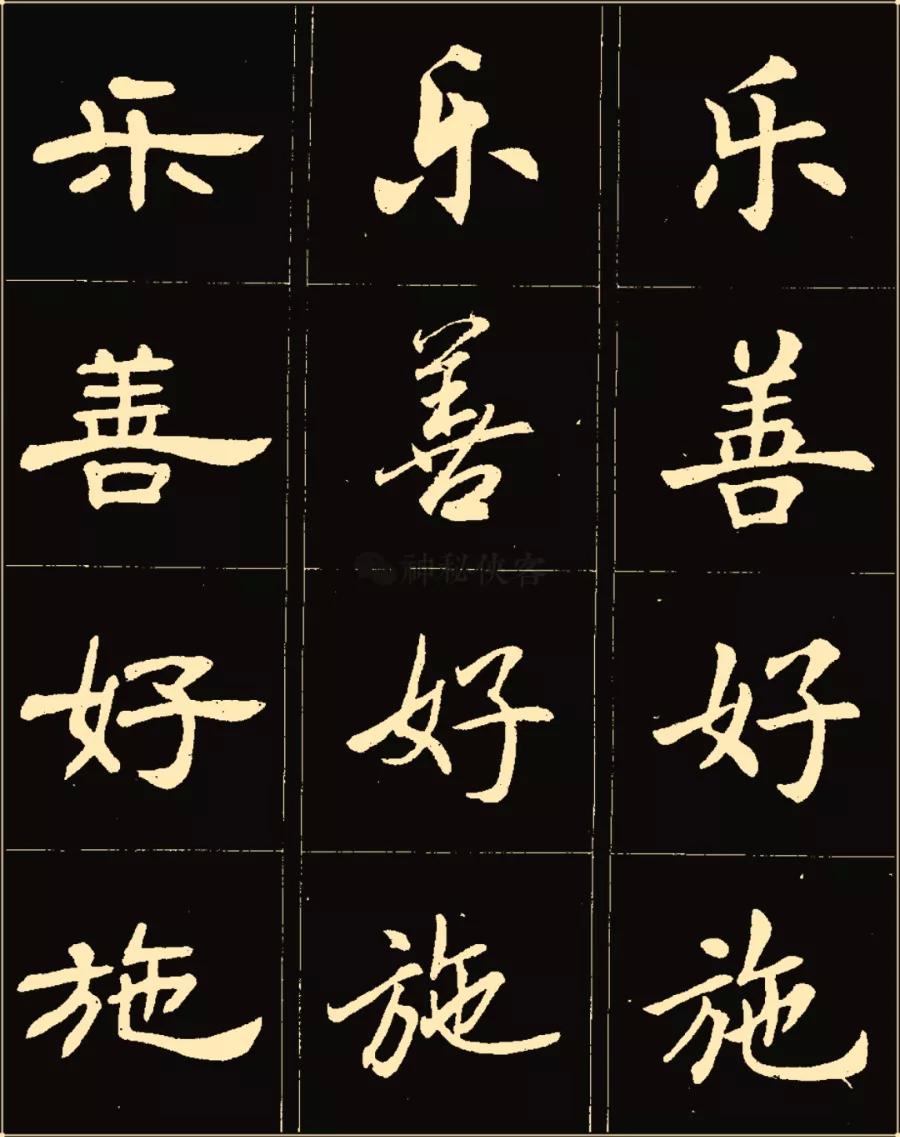 乐善好施
乐善好施
乐善好施
神秘侠客